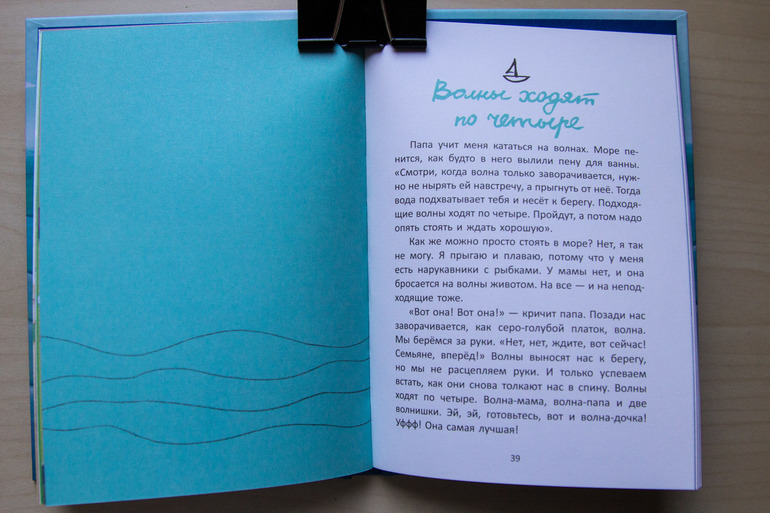 Волны ходят
по четыре
Папа учит меня кататься на волнах. Море пе-
нится, как будто в него вылили пену для ванны.
«Смотри, когда волна только заворачивается, нуж-
но не нырять ей навстречу, а прыгнуть от неё. Тогда
вода подхватывает тебя и несёт к берегу. Подходя-
щие волны ходят по четыре. Пройдут, а потом надо
опять стоять и ждать хорошую».
Как же можно просто стоять в море? Нет, я так
не могу. Я прыгаю и плаваю, потому что у меня
есть нарукавники с рыбками. У мамы нет, и она
бросается на волны животом. На все — и на непод-
ходящие тоже.
«Вот она! Вот она!» — кричит папа. Позади нас
заворачивается, как серо-голубой платок, волна.
Мы берёмся за руки. «Нет, нет, ждите, вот сейчас!
Семьяне, вперёд!» Волны выносят нас к берегу,
но мы не расцепляем руки. И только успеваем
встать, как они снова толкают нас в спину. Волны
ходят по четыре. Волна-мама, волна-папа и две
волнишки. Эй, эй, готовьтесь, вот и волна-дочка!
Уффф! Она самая лучшая!
39